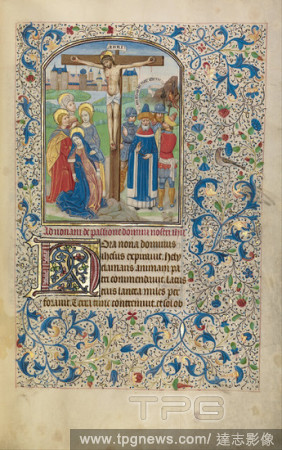 INRI
Ad nonam de passione domini nostri ihu
Hora nona dominus
ihesus expirauit. hely
clamans animam pa
tri commendauit. Latus
eius lancea miles per
forauit. Terra tunc contremuit et sol ob
TPG
www.tpgnews.com / 達志影像